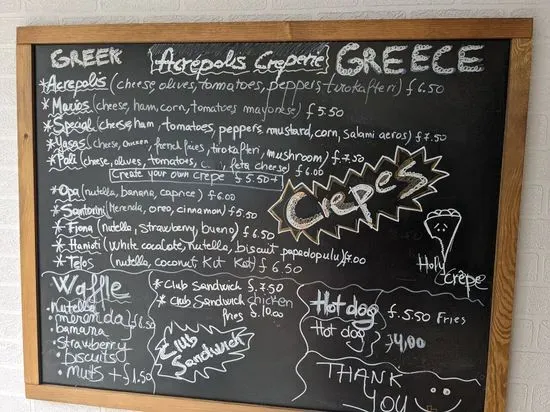 GREEK Acropolis Creperie GREECE
* Acrepolis (cheese, olives, tomatoes, peppers, tirokafteri) £ 6.50
* Marios (cheese, ham, corn, tomatoes, mayonese) £ 5.50
* Special (cheese, ham, tomatoes, peppers, mustard, corn, salami aeros) £ 7.50
* Yasas (cheese, chicken, french fries, tirokafteri, mushroom) £ 7.50
* Pali (cheese, olives, tomatoes, feta cheese) £ 6.00
Create your own crepe £ 5.50 +1
Crepes
* Opa (nutella, banana, caprice) £ 6.00
* Santorini (Merenda, oreo, cinnamon) £ 5.50
* Fiona (nutella, strawberry, bueno) £ 6.50
* Hanioti (white cocolate, nutella, biscuit papadopulu) £ 7.00
* Telos (nutella, coconut, Kit Kat) £ 6.50
Holy
crêpe
Waffle
Nutella
• merenda £ 6.50
• banana
• strawberry
• biscuits
• nuts + £ 1.50
* Club Sandwich £ 7.50
* Club Sandwich chicken
fries £. 10.00
Club
Sandwich
Hot dog £. 5.50 Fries
Hot dog
£ 4,00
THANK
YOU